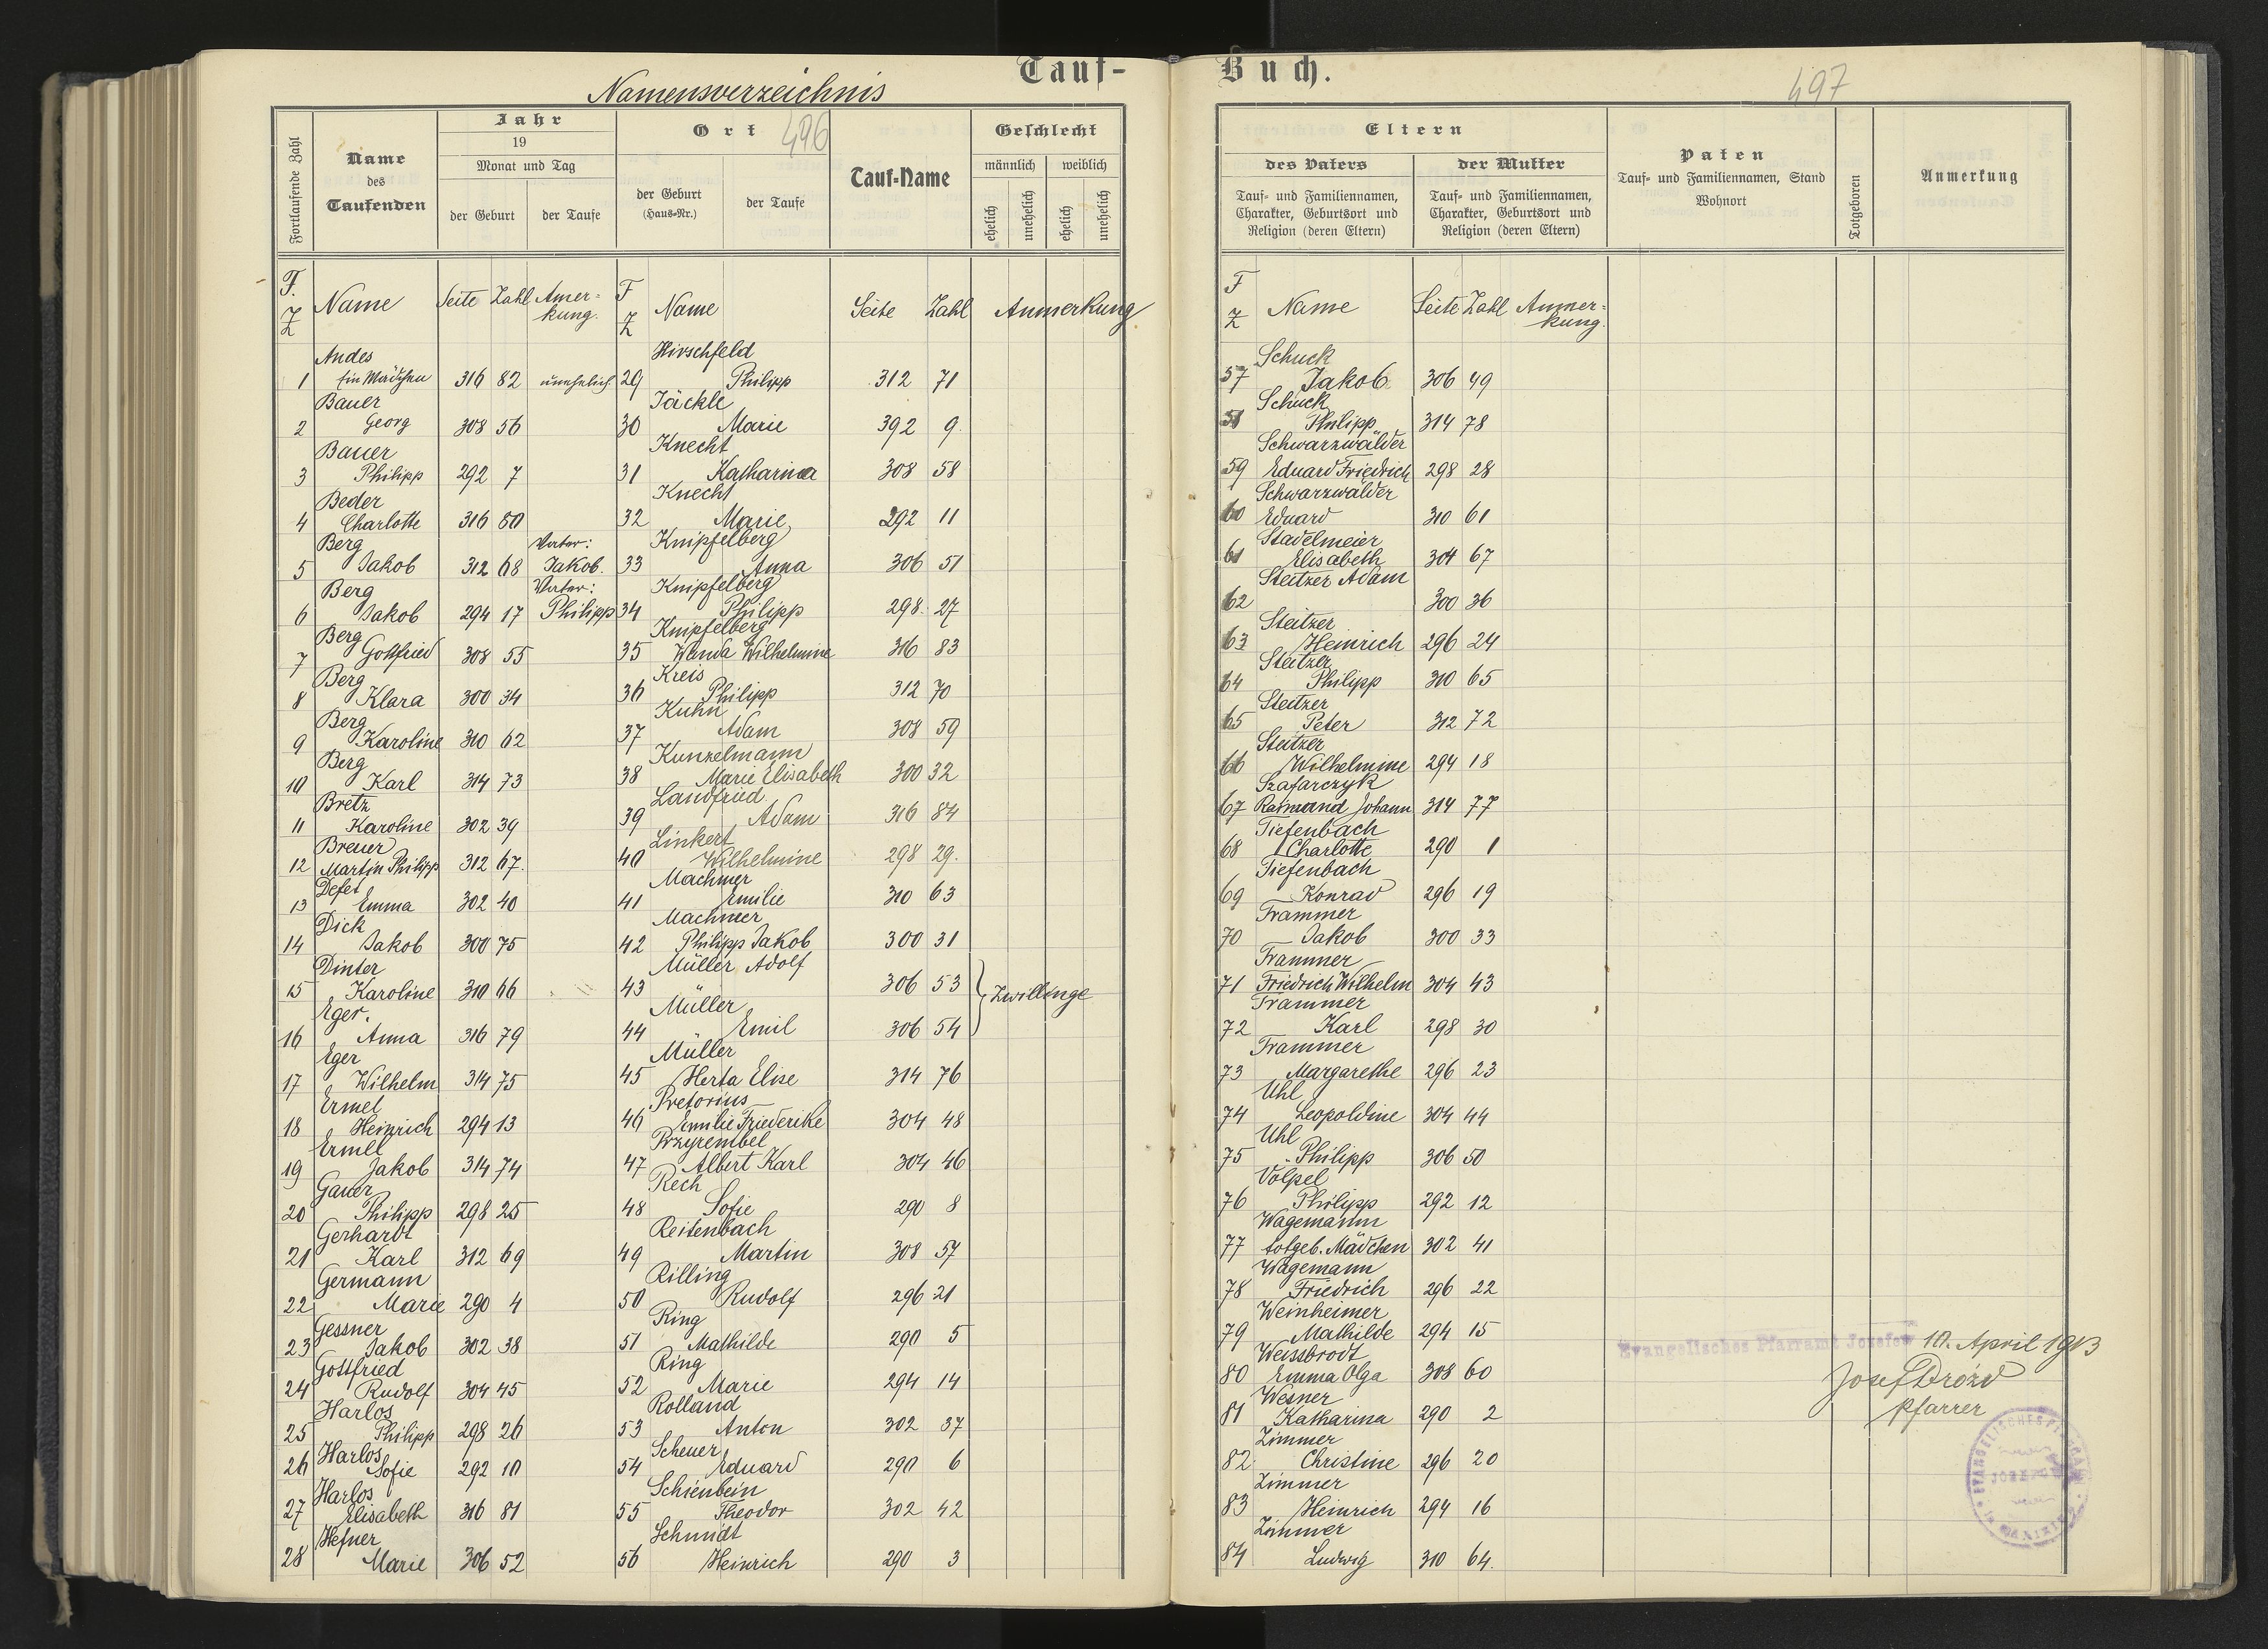 Tauf-
Namensverzeichnis
496
Fortlaufende Zahl
Name
des
Taufenden
Jahr
19
Monat und Tag
der Geburt
der Taufe
Ort
der Geburt
(Haus-Nr.)
der Taufe
Tauf-Name
Geschlecht
männlich weiblich
ehelich unehelich ehelich unehelich
F. Z Name Seite Zahl Amer=
kung.
Andes
1 Ein Mädchen 316 82 unehelich
Bauer
2 Georg 308 56
Bauer
3 Philipp 292 7
Beder
4 Charlotte 316 80
Berg Vater:
5 Jakob 312 68 Jakob.
Berg Vater:
6 Jakob 294 17 Philipp
Berg
7 Gottfried 308 55
Berg
8 Klara 300 34
Berg
9 Karoline 310 62
Berg
10 Karl 314 73
Bretz
11 Karoline 302 39
Breuer
12 Martin Philipp 312 67.
Defet
13 Emma 302 40
Dick
14 Jakob 300 75
Dinter
15 Karoline 310 66
Eger.
16 Anna 316 79
Eger
17 Wilhelm 314 75
Ermel
18 Heinrich 294 13
Ermel
19 Jakob 314 74
Gauer
20 Philipp 298 25
Gerhardt
21 Karl 312 69
Germann
22 Marie 290 4
Gessner
23 Jakob 302 38
Gottfried
24 Rudolf 304 45
Harlos
25 Philipp 298 26
Harlos
26 Sofie 292 10
Harlos
27 Elisabeth 316 81
Hefner
28 Marie 306 52
F Z Name Seite Zahl Anmerkung
Hirschfeld
29 Philipp 312 71
Jäckle
30 Marie 392 9
Knecht
31 Katharina 308 58
Knecht
32 Marie 292 11
Knipfelberg
33 Anna 306 51
Knipfelberg
34 Philipp 298 27
Knipfelberg
35 Wanda Wilhelmine 316 83
Kreis
36 Philipp 312 70
Kuhn
37 Adam 308 59
Kunzelmann
38 Marie Elisabeth 300 32
Landfried
39 Adam 316 84
Linkert
40 Wilhelmine 298 29.
Machmer
41 Emilie 310 63
Machmer
42 Philipp Jakob 300 31
Müller Adolf
43 306 53
Zwillinge
Müller
44 Emil 306 54
Müller
45 Herta Elise 314 76
Pretorius
46 Emilie Friederike 304 48
Przyrembel
47 Albert Karl 304 46
Rech
48 Sofie 290 8
Reitenbach
49 Martin 308 57
Rilling
50 Rudolf 296 21
Ring
51 Mathilde 290 5
Ring
52 Marie 294 14
Rolland
53 Anton 302 37
Scheuer
54 Eduard 290 6
Schienbein
55 Theodor 302 42
Schmidt
56 Heinrich 290 3
Buch.
497
Eltern
des Vaters
der Mutter
Tauf- und Familiennamen,
Charakter, Geburtsort und
Religion (deren Eltern)
Tauf- und Familiennamen,
Charakter, Geburtsort und
Religion (deren Eltern)
Paten
Tauf- und Familiennamen, Stand
Wohnort
Totgeboren
Anmerkung
F Z Name Seite Zahl Anmer=
kung.
Schuck
57 Jakob 306 49
Schuck
58 Philipp 314 78
Schwarzwälder
59 Eduard Friedrich 298 28
Schwarzwälder
60 Eduard 310 61
Stadelmeier
61 Elisabeth 304 67
Steitzer Adam
62 300 36
Steitzer
63 Heinrich 296 24
Steitzer
64 Philipp 310 65
Steitzer
65 Peter 312 72
Steitzer
66 Wilhelmine 294 18
Szafarczyk
67 Raimand Johann 314 77
Tiefenbach
68 Charlotte 290 1
Tiefenbach
69 Konrad 296 19
Trammer
70 Jakob 300 33
Trammer
71 Friedrich Wilhelm 304 43
Trammer
72 Karl 298 30
Trammer
73 Margarethe 296 23
Uhl
74 Leopoldine 304 44
Uhl
75 Philipp 306 50
Völpel
76 Philipp 292 12
Wagemann
77 totgeb. Mädchen 302 41
Wagemann
78 Friedrich 296 22
Weinheimer
79 Mathilde 294 15
Weissbrodt
80 Emma Olga 308 60
Wesner
81 Katharina 290 2
Zimmer
82 Christine 296 20
Zimmer
83 Heinrich 294 16
Zimmer
84 Ludwig 310 64.
Evangelisches Pfarramt Josefow 10. April 1913
Josef Drózd
Pfarrer